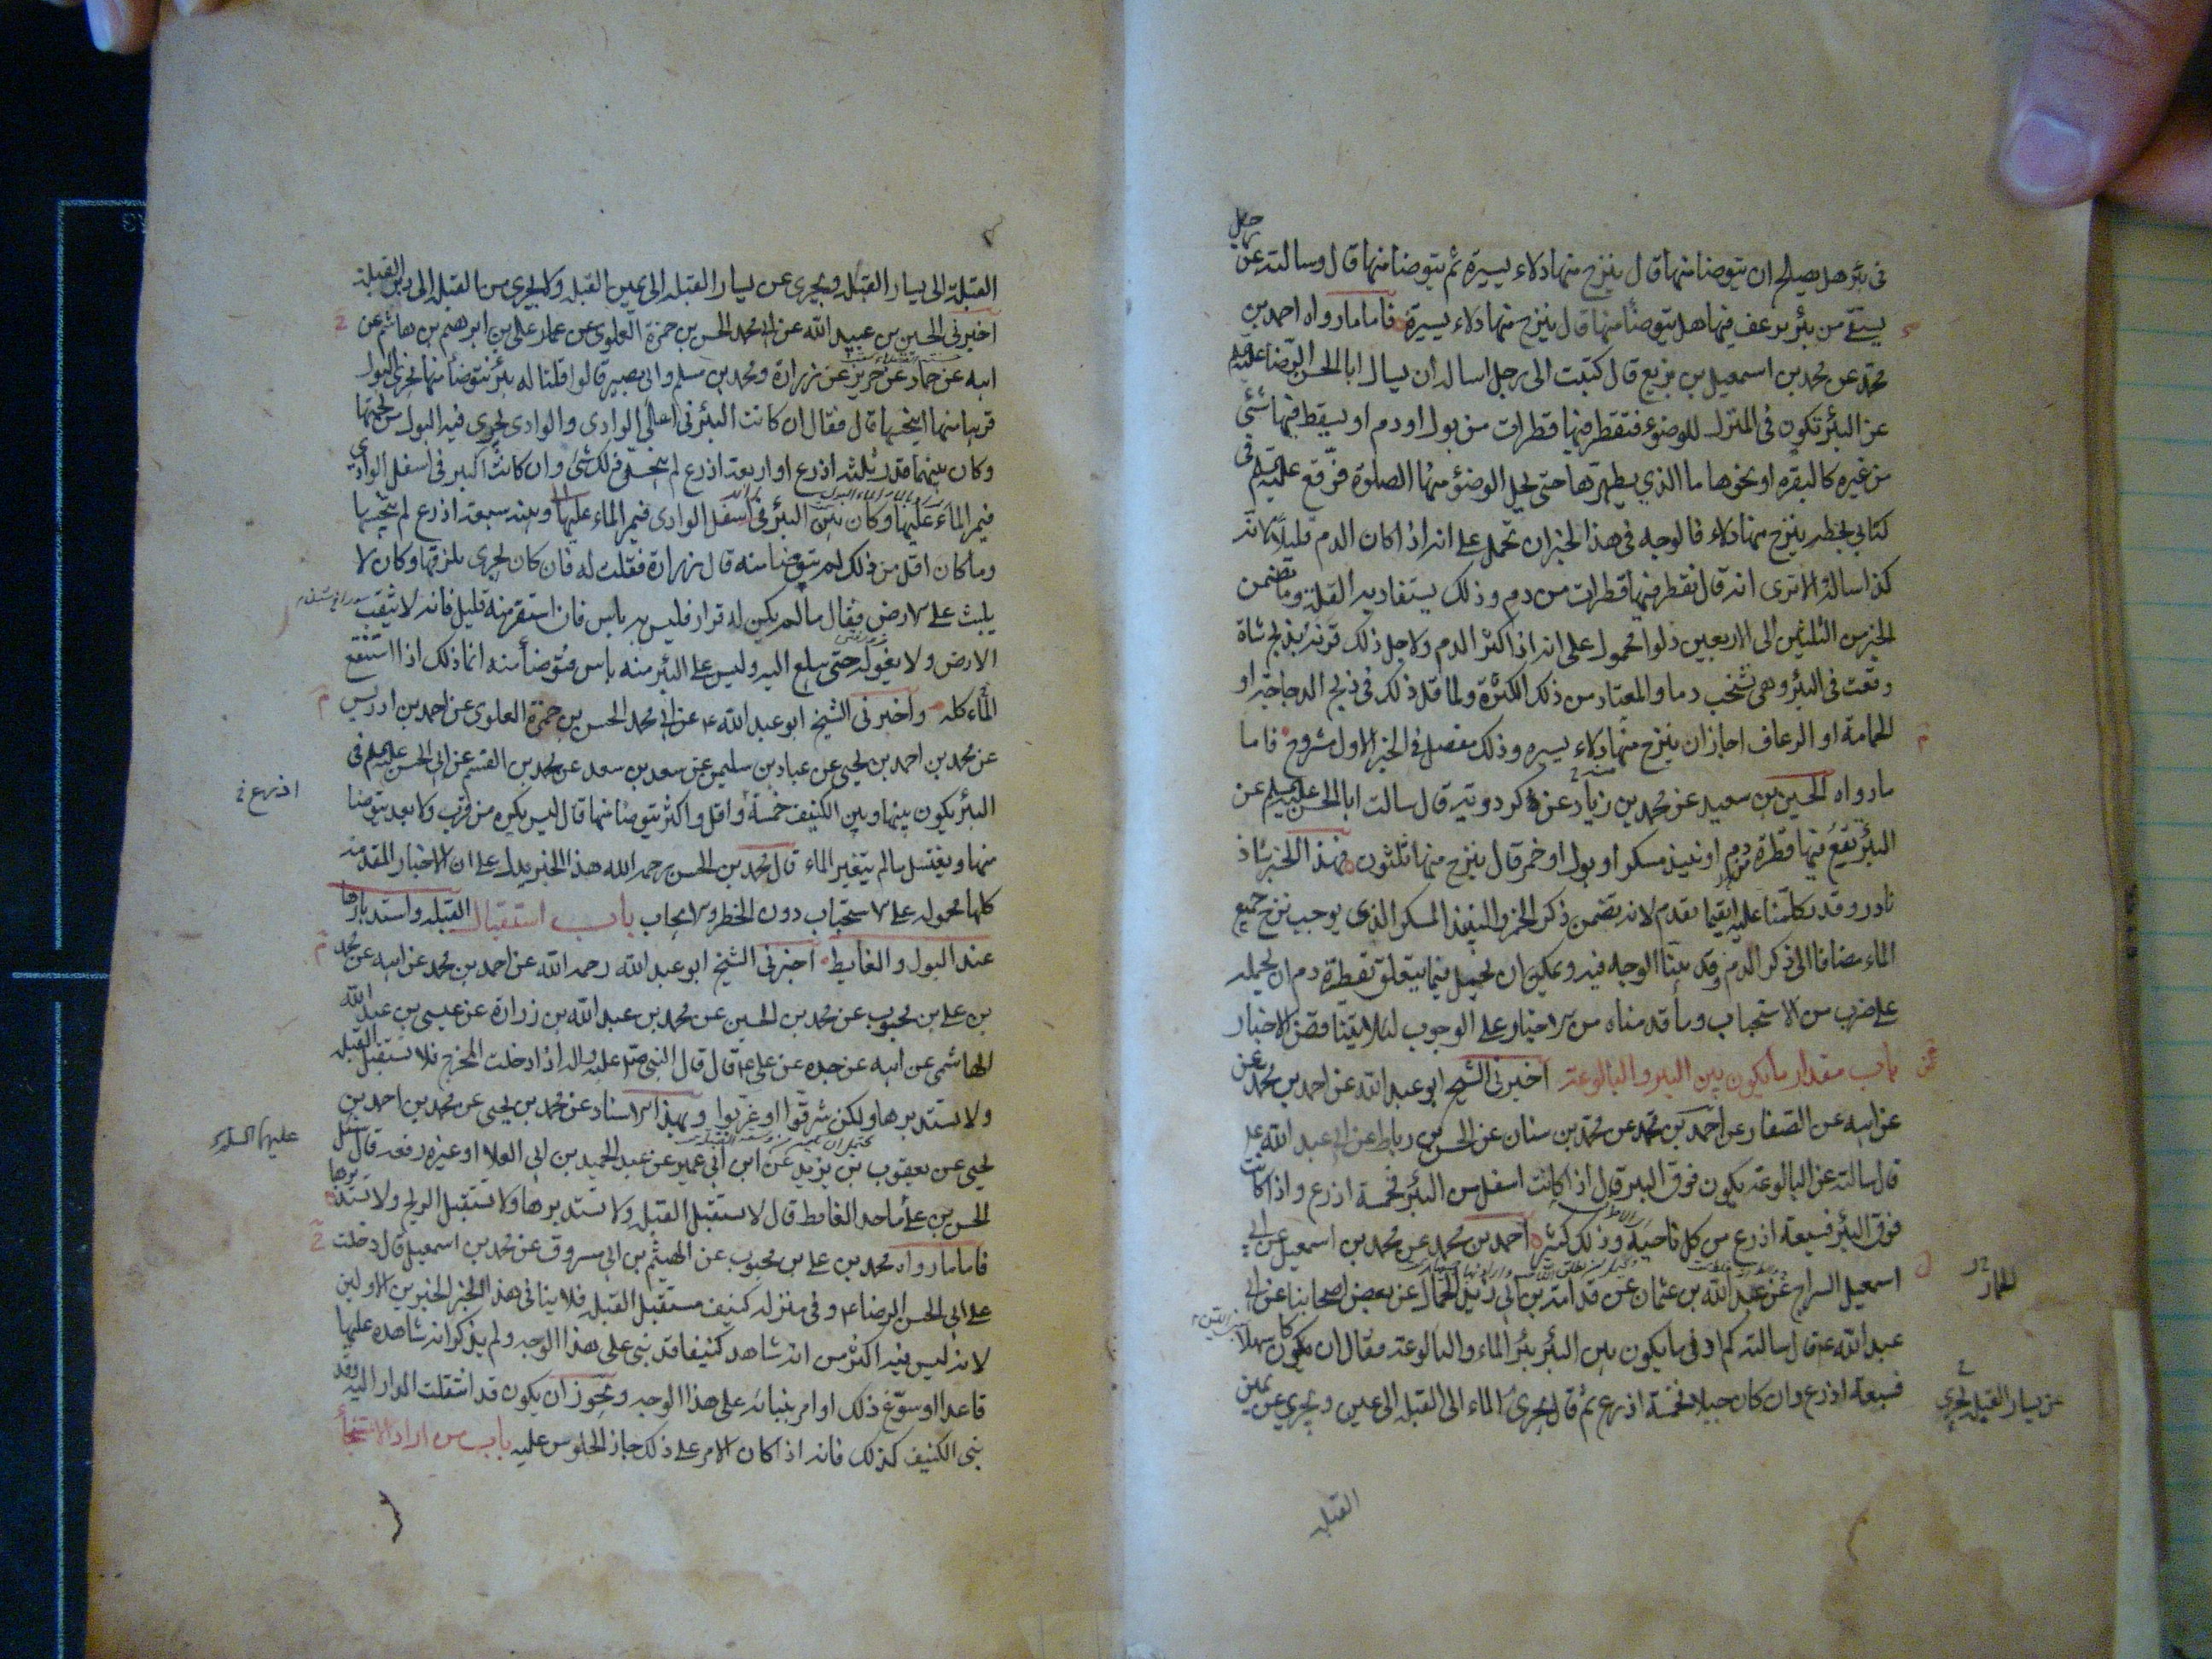 في بئر هل يصلح ان يتوضا منها قال ينزح منها دلاء يسيرة ثم يتوضا منها قال وسالته عن رجل
يستقى من بئر يرعف فيها هل يتوضأ منها قال ينزح منها دلاء يسيرة فاما ما رواه احمد بن
محمد عن محمد بن اسمعيل بن بزيع قال كتبت الى رجل اساله ان يسال ابا الحسن الرضا عليه
عن البئر تكون في المنزل للوضوء فتقطر فيها قطرات من بول او دم او يسقط فيها شئ
من غيره كالبقره او نحوها ما الذي يطهرها حتى يحل الوضوء منها الصلوة فوقع عليه السلم في
كتابي بخطه ينزح منها دلاء فالوجه في هذا الخبر ان نحمل على انه اذا كان الدم قليلا لانه
كذا ساله الا ترى انه قال تقطر فيها قطرات من دم وذلك يستفاد به القلة وما تضمن
الخبر من الثلثين الى الاربعين دلوا محمول على انه اذا كثر الدم ولاجل ذلك قرنه بذبح شاة
وقعت في البئر وهي تشخب دما والمعتاد من ذلك الكثرة ولما قل ذلك في ذبح الدجاجة او
الحمامة او الرعاف اجاز ان ينزح منها دلاء يسيره وذلك مفصل في الخبر الاول مشروح فاما
ما رواه الحسين بن سعيد عن محمد بن زياد عن كردويه قال سالت ابا الحسن عليه السلم عن
البئر يقع فيها قطرة دم او نبيذ مسكر او بول او خمر قال ينزح منها ثلثون فهذا الخبر شاذ
نادر وقد تكلمنا عليه فيما تقدم لانه تضمن ذكر الخمر والنبيذ المسكر الذي يوجب نزح جميع
الماء مضافا الى ذكر الدم وقد بينا الوجه فيه ويمكن ان نحمل فيما يتعلق بقطرة دم ان نحمله
على ضرب من الاستحباب وما قدمناه من الاخبار على الوجوب لئلا يتناقض الاخبار
باب مقدار ما يكون بين البئر والبالوعة اخبرني الشيخ ابو عبد الله عن احمد بن محمد عن
عن ابيه عن الصفار عن احمد بن محمد عن محمد بن سنان عن الحسن بن رباط عن ابي عبد الله ع
قال سالته عن البالوعة يكون فوق البئر قال اذا كانت اسفل من البئر فخمسة اذرع واذا كانت
فوق البئر فسبعة اذرع من كل ناحية وذلك كثير احمد بن محمد عن محمد بن اسمعيل عن ابي
اسمعيل السراج عن عبد الله بن عثمان عن قدامة بن ابي زيد الحمال عن بعض اصحابنا عن ابي
الحمار
عبد الله ع قال سالته كم ادنى ما يكون بين البئر بئر الماء والبالوعة فقال ان كان سهلا
فسبعة اذرع وان كان جبلا فخمسة اذرع ثم قال يجري الماء الى القبلة الى يمين ويجري عن يمين
عن يسار القبلة يجري
القبلة
القبلة الى يسار القبلة ويجري عن يسار القبلة الى يمين القبلة ولا يجري من القبلة الى دبر القبلة
اخبرني الحسين بن عبيد الله عن ابي محمد الحسن بن حمزة العلوي عن علي بن ابرهيم بن هاشم عن
ابيه عن حماد عن حريز عن زرارة ومحمد بن مسلم وابي بصير قالوا قلنا له بئر نتوضأ منها يجري البول
قريبا منها اينجسها قال فقال ان كانت البئر في اعلى الوادي والوادي يجري فيه البول من تحتها
وكان بينهما قدر ثلثة اذرع او اربعة اذرع لم ينجس ذلك شئ وان كانت البئر في اسفل الوادي
فيمر الماء عليها وكان بين البئر في اسفل الوادي فيمر الماء عليها وبينه سبعة اذرع لم ينجسها
وما كان اقل من ذلك لم يتوضا منه قال زرارة فقلت له فان كان يجري بلزقها وكان لا
يلبث على الارض فقال ما لم يكن له قرار فليس به باس فان استقر منه قليل فانه لا يثقب
الارض ولا يغوله حتى يبلغ اليه وليس على البئر منه باس فتوضأ منه انما ذلك اذا استنقع
الماء كله واخبرني الشيخ ابو عبد الله ع عن ابي محمد الحسن بن حمزة العلوي عن احمد بن ادريس
عن محمد بن احمد بن يحيى عن عباد بن سليمن عن سعد بن سعد عن محمد بن القسم عن ابي الحسن عليه السلم في
اذرع
البئر يكون بينها وبين الكنيف خمسة واقل واكثر يتوضأ منها قال ليس يكره من قرب ولا بعد يتوضا
منها ويغتسل ما لم يتغير الماء قال محمد بن الحسن رحمه الله هذا الخبر يدل على ان الاخبار المقدمة
كلها محمولة على الاستحباب دون الحظر والايجاب باب استقبال القبلة واستدبارها
عند البول والغايط اخبرني الشيخ ابو عبد الله رحمه الله عن احمد بن محمد عن ابيه عن محمد
بن علي بن محبوب عن محمد بن الحسين عن محمد بن عبد الله بن زرارة عن عيسى بن عبد الله
الهاشمي عن ابيه عن جده عن علي ع قال قال النبي صلى عليه واله اذا دخلت المخرج فلا تستقبل القبلة
ولا تستدبرها ولكن شرقوا او غربوا وبهذا الاسناد عن محمد بن يحيى عن محمد بن احمد بن
يحيى عن يعقوب بن يزيد عن ابن ابي عمير عن عبد الحميد بن ابي العلا او غيره رفعه قال سئل
عليهما السلم
الحسن بن علي ما حد الغائط قال لا تستقبل القبلة ولا تستدبرها ولا تستقبل الريح ولا تستدبرها
فاما ما رواه محمد بن علي بن محبوب عن الهيثم بن ابي مسروق عن محمد بن اسمعيل قال دخلت
على ابي الحسن الرضا ع وفي منزله كنيف مستقبل القبلة فلا ينافي هذا الخبر الخبرين الاولين
لانه ليس فيه اكثر من انه شاهد كنيفا قد بنى على هذا الوجه ولم يذكر انه شاهده عليها
قاعدا او سوغ ذلك او امر ببنائه على هذا الوجه ويجوز ان يكون قد انتقلت الدار اليه وقد
بنى الكنيف كذلك فانه اذا كان الامر على ذلك جاز الجلوس عليه باب من اراد الاستنجاء